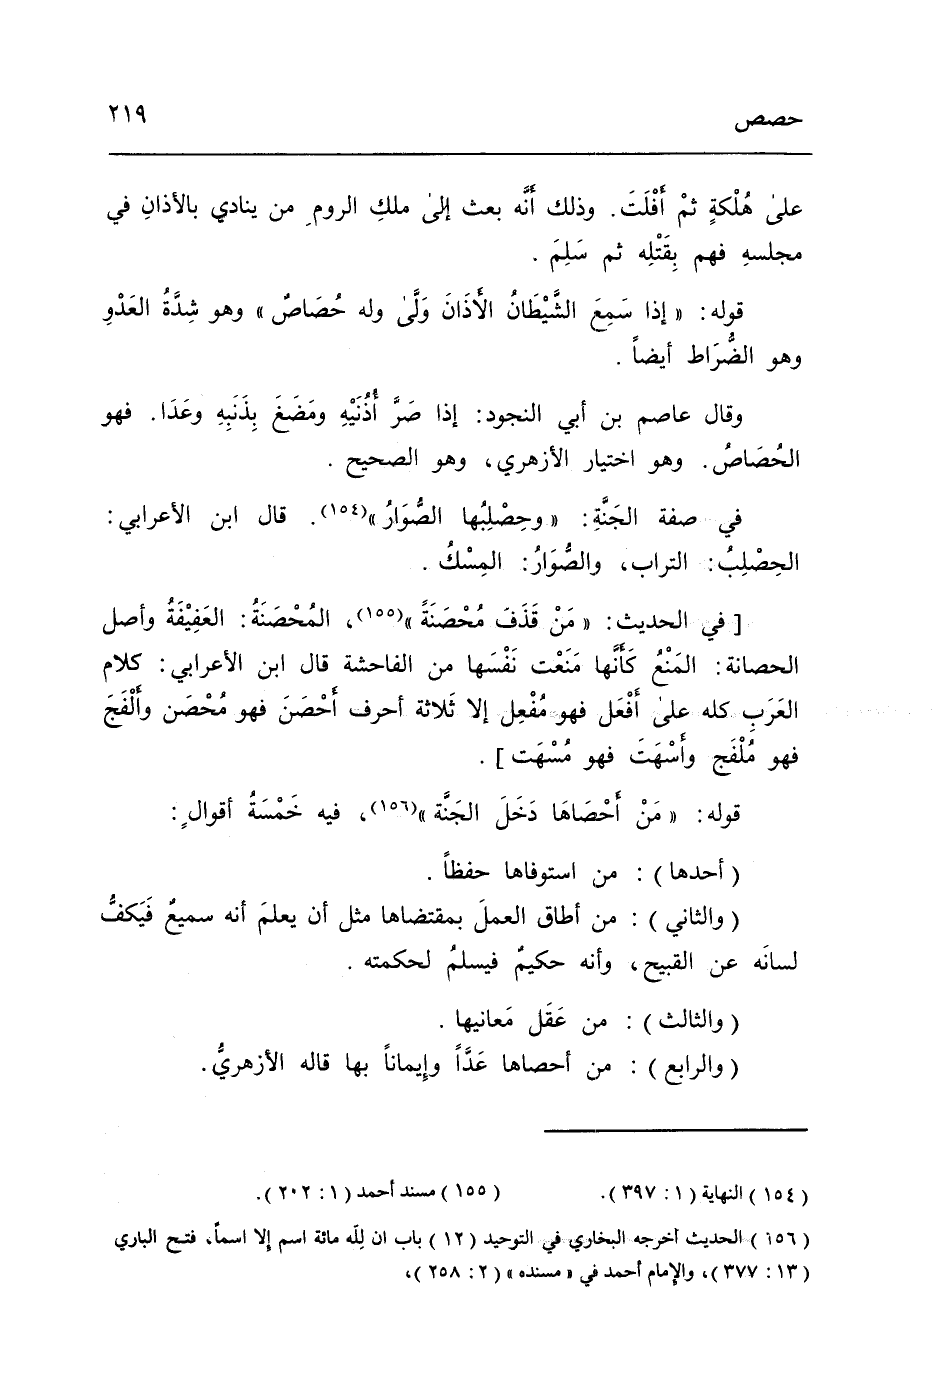 حصص ٢١٩
علىٰ هُلْكةٍ ثمْ أَفْلَتَ. وذلك أنَّه بعث إلىٰ ملكِ الروم ِ من ينادي بالأذانِ في
مجلسهِ فهم بِقَتْلِه ثم سَلِمَ .
قوله: « إذا سَمِعَ الشَّيْطَانُ الأَذَانَ وَلَّىٰ وله حُصَاصٌ » وهو شِدَّةُ العَدْوِ
وهو الضُّرَاط أيضاً .
وقال عاصم بن أبي النجود: إذا صَرَّ أُذُنَيْهِ ومَضَغَ بِذَنَبِهِ وعَدَا. فهو
الحُصَاصُ. وهو اختيار الأزهري، وهو الصحيح .
في صفة الجَنَّةِ: « وحِصْلِبُها الصُّوَارُ »(١٥٤). قال ابن الأعرابي:
الحِصْلِبُ: التراب، والصُّوَارُ: المِسْكُ .
[ في الحديث: « مَنْ قَذَفَ مُحْصَنَةً »(١٥٥)، المُحْصَنَةُ: العَفِيْفَةُ وأصل
الحصانة: المَنْعُ كَأَنَّها مَنَعْت نَفْسَها من الفاحشة قال ابن الأعرابي: كلام
العَرَبِ كله علىٰ أَفْعَل فهو مُفْعِل إلا ثَلاثة أحرف أَحْصَنَ فهو مُحْصَن وأَلْفَجَ
فهو مُلْفَج وأَسْهَتَ فهو مُسْهَت ] .
قوله: « مَنْ أَحْصَاهَا دَخَلَ الجَنَّة »(١٥٦)، فيه خَمْسَةُ أقوالٍ:
( أحدها ) : من استوفاها حفظاً .
( والثاني ) : من أطاق العملَ بمقتضاها مثل أن يعلمَ أنه سميعٌ فَيَكفُّ
لسانَه عن القبيح، وأنه حكيمٌ فيسلمُ لحكمته .
( والثالث ) : من عَقَل مَعانيها .
( والرابع ) : من أحصاها عَدَّاً وإيماناً بها قاله الأزهريُّ.
( ١٥٤ ) النهاية ( ١ : ٣٩٧ ). ( ١٥٥ ) مسند أحمد ( ١ : ٢٠٢ ).
( ١٥٦ ) الحديث أخرجه البخاري في التوحيد ( ١٢ ) باب ان لِلَّه مائة اسم إلا اسماً، فتح الباري
( ١٣ : ٣٧٧ )، والإمام أحمد في « مسنده » ( ٢ : ٢٥٨ )،